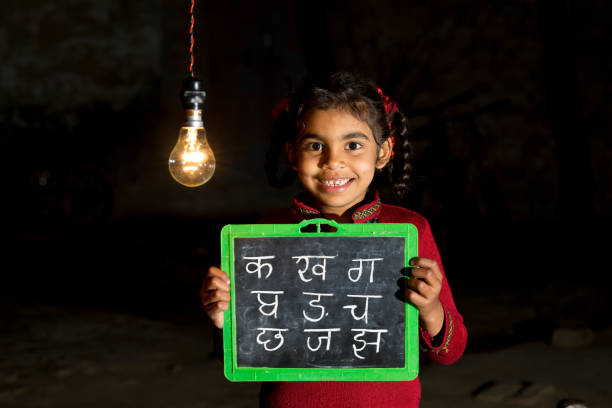 क ख ग
ब ङ च
छ ज झ